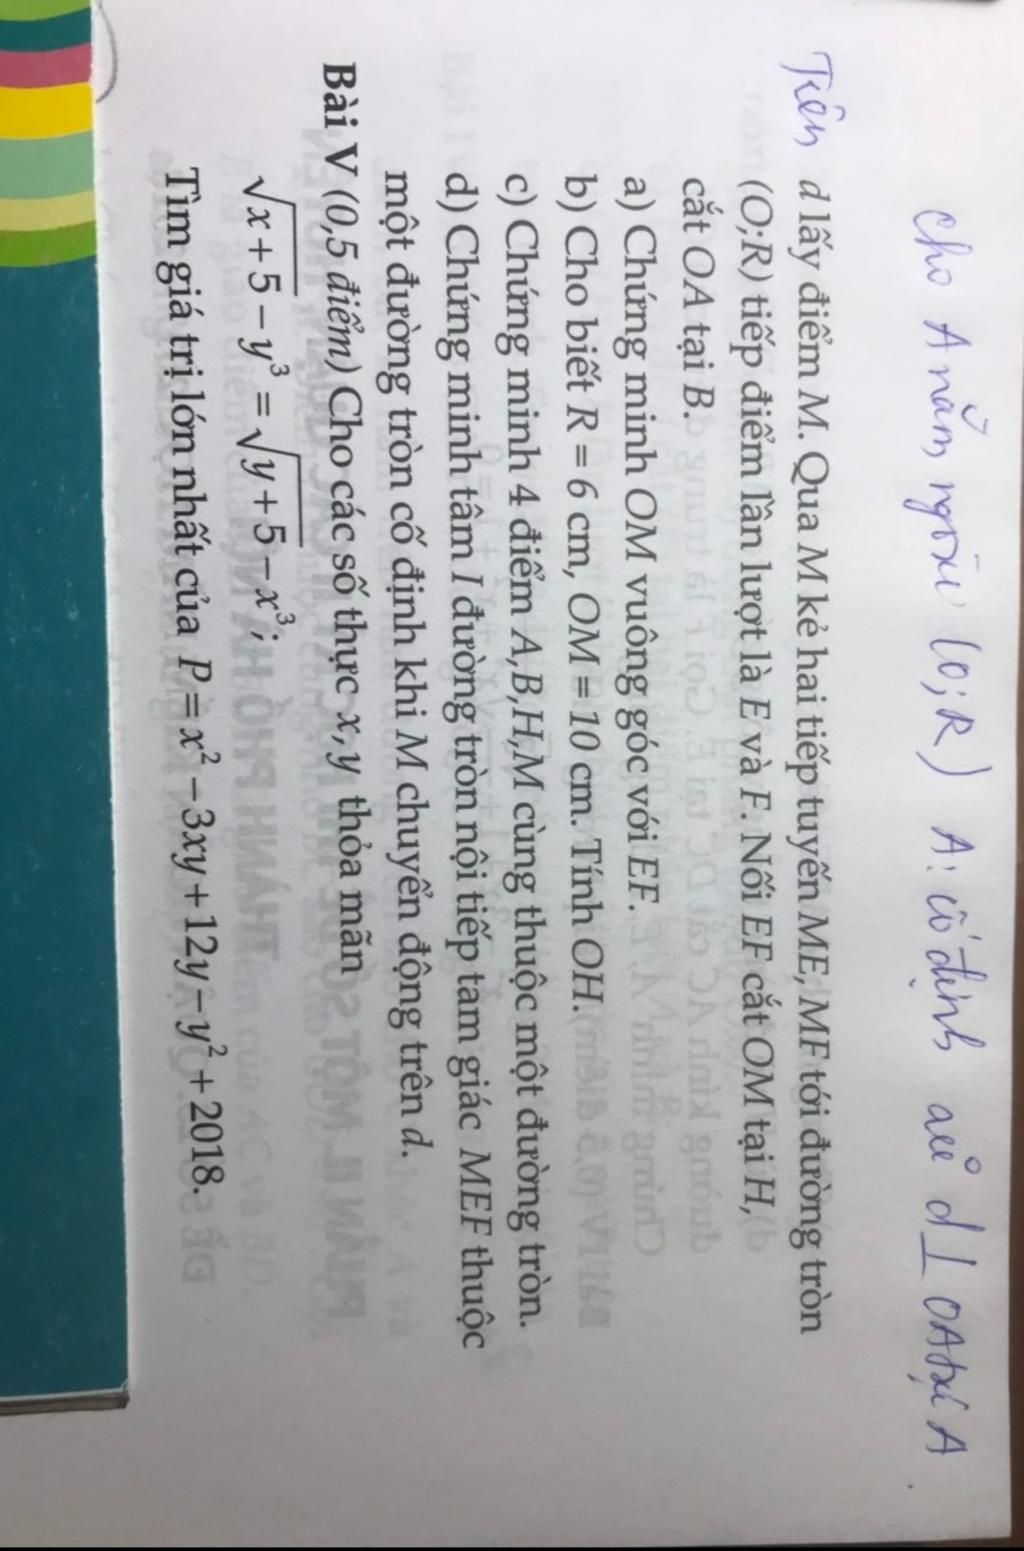 Cho A nằm ngoài (O;R) A: cố định d ⊥ OA tại A.
Trên d lấy điểm M. Qua M kẻ hai tiếp tuyến ME, MF tới đường tròn
(O;R) tiếp điểm lần lượt là E và F. Nối EF cắt OM tại H,
cắt OA tại B.
a) Chứng minh OM vuông góc với EF.
b) Cho biết R = 6 cm, OM = 10 cm. Tính OH.
c) Chứng minh 4 điểm A,B,H,M cùng thuộc một đường tròn.
d) Chứng minh tâm I đường tròn nội tiếp tam giác MEF thuộc
một đường tròn cố định khi M chuyển động trên d.
Bài V (0,5 điểm) Cho các số thực x,y thỏa mãn
√x+5 − y³ = √y+5 − x³;
Tìm giá trị lớn nhất của P = x² − 3xy + 12y − y² + 2018.